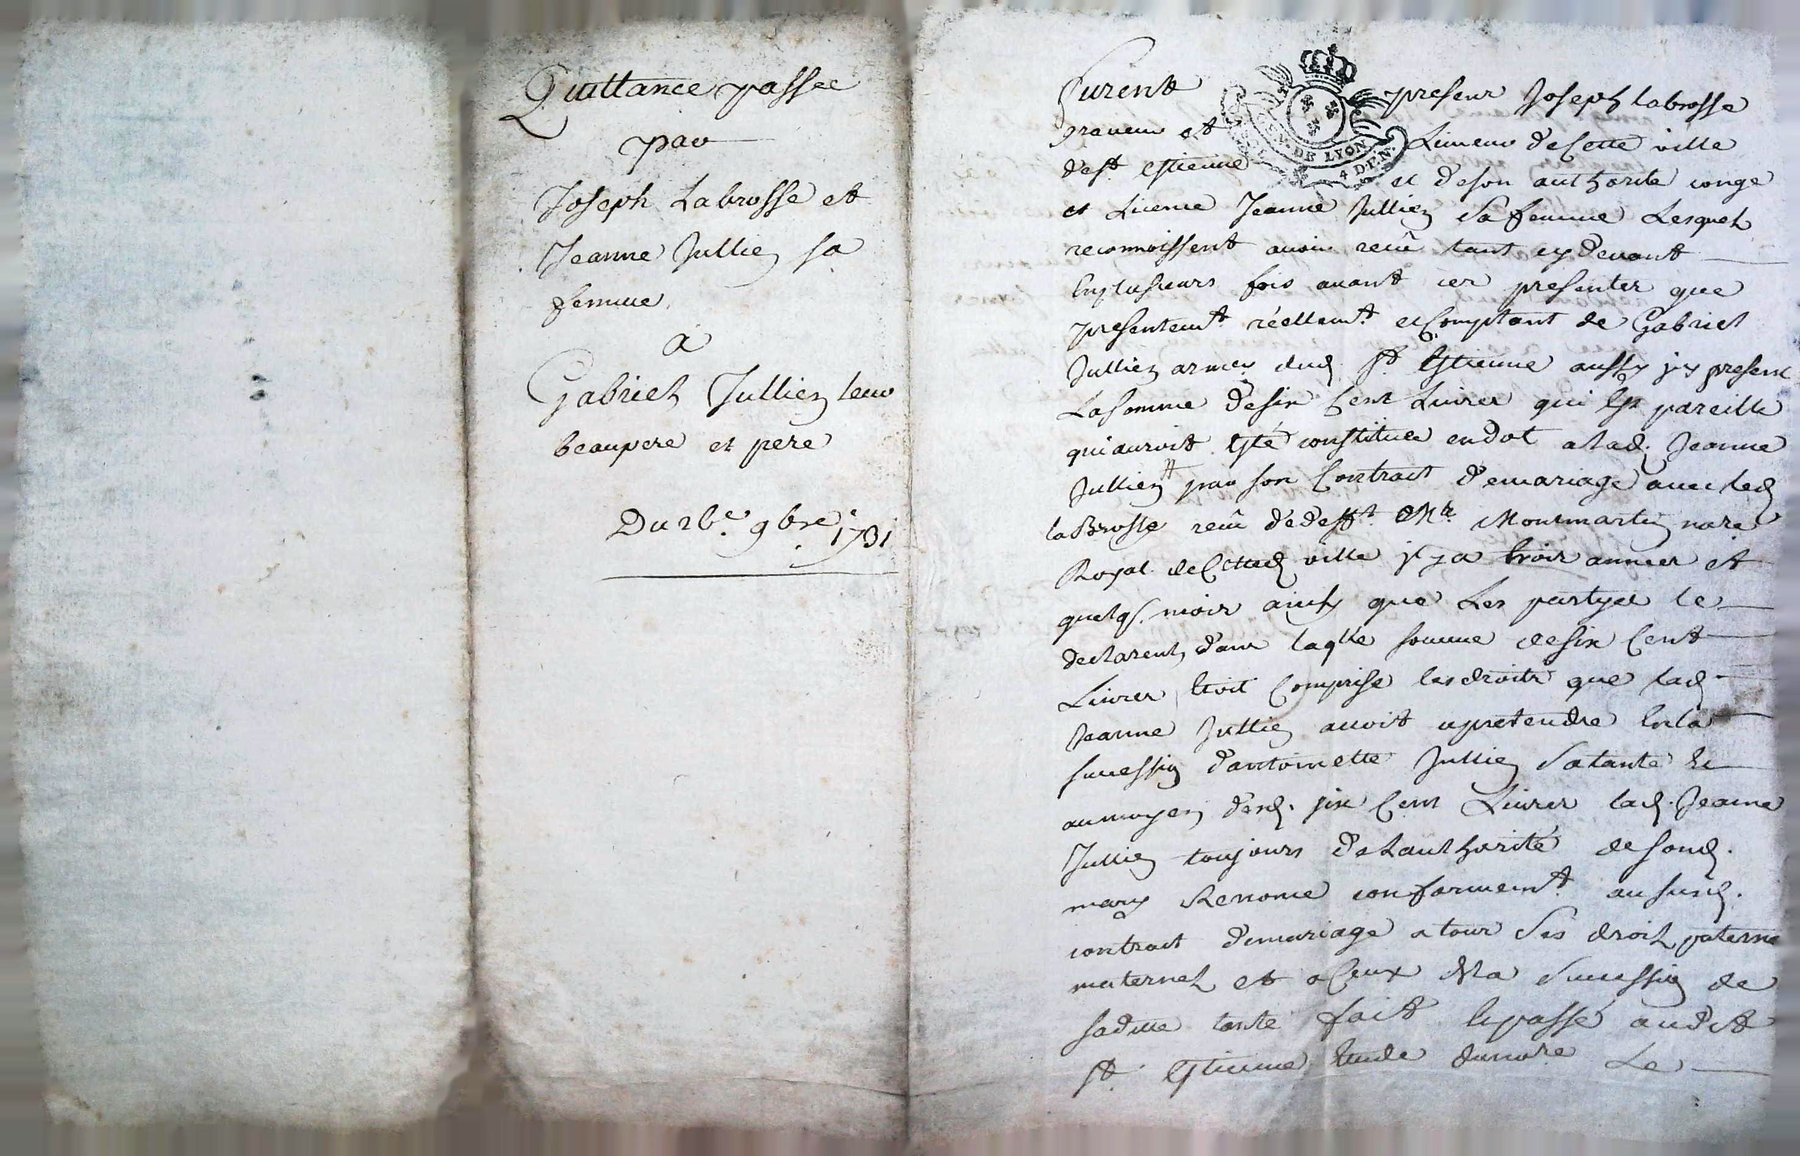 Quittance passée
par
Joseph Labrosse et
Jeanne Jullien sa
femme
a
Gabriel Jullien leur
beaupere et pere
Du 9bre 1731
GEN. DE LYON
4 D.EN.
Furent presens Joseph labrosse
graveur et Limeur de Cette ville
de st estienne et de son authorité conge
et Licence Jeanne Jullien sa femme Lesquels
reconnoissent avoir receu tant cy devant
En plusieurs fois avant ces presentes que
presentemt. réellemt. et Comptant de Gabriel
Jullien dud. st Estienne aussy present
La somme de six Cent Livres qui Est pareille
qui auroit Esté constituée en dot a lad. Jeanne
Jullien par son Contract de mariage avec led.
la Brosse receu de Mr. Montmartin nore
Royal de Cetted. ville il y a trois années et
quelqs. mois ainsy que Les partyes le
declarent, dans laqlle somme de six Cent
Livres Etoit Comprise les droits que lad.
Jeanne Jullien avoit a pretendre En la
succession d'antoinette Jullien sa tante Et
au moyen desd. six Cent Livres lad. Jeanne
Jullien toujours de Lauthorité de sond.
mary Renonce conformemt. au susd.
contract de mariage a tous ses droits paternels
maternels et a Ceux de la succession de
saditte tante fait Et passé audit
st. Estienne Etude du nore Le